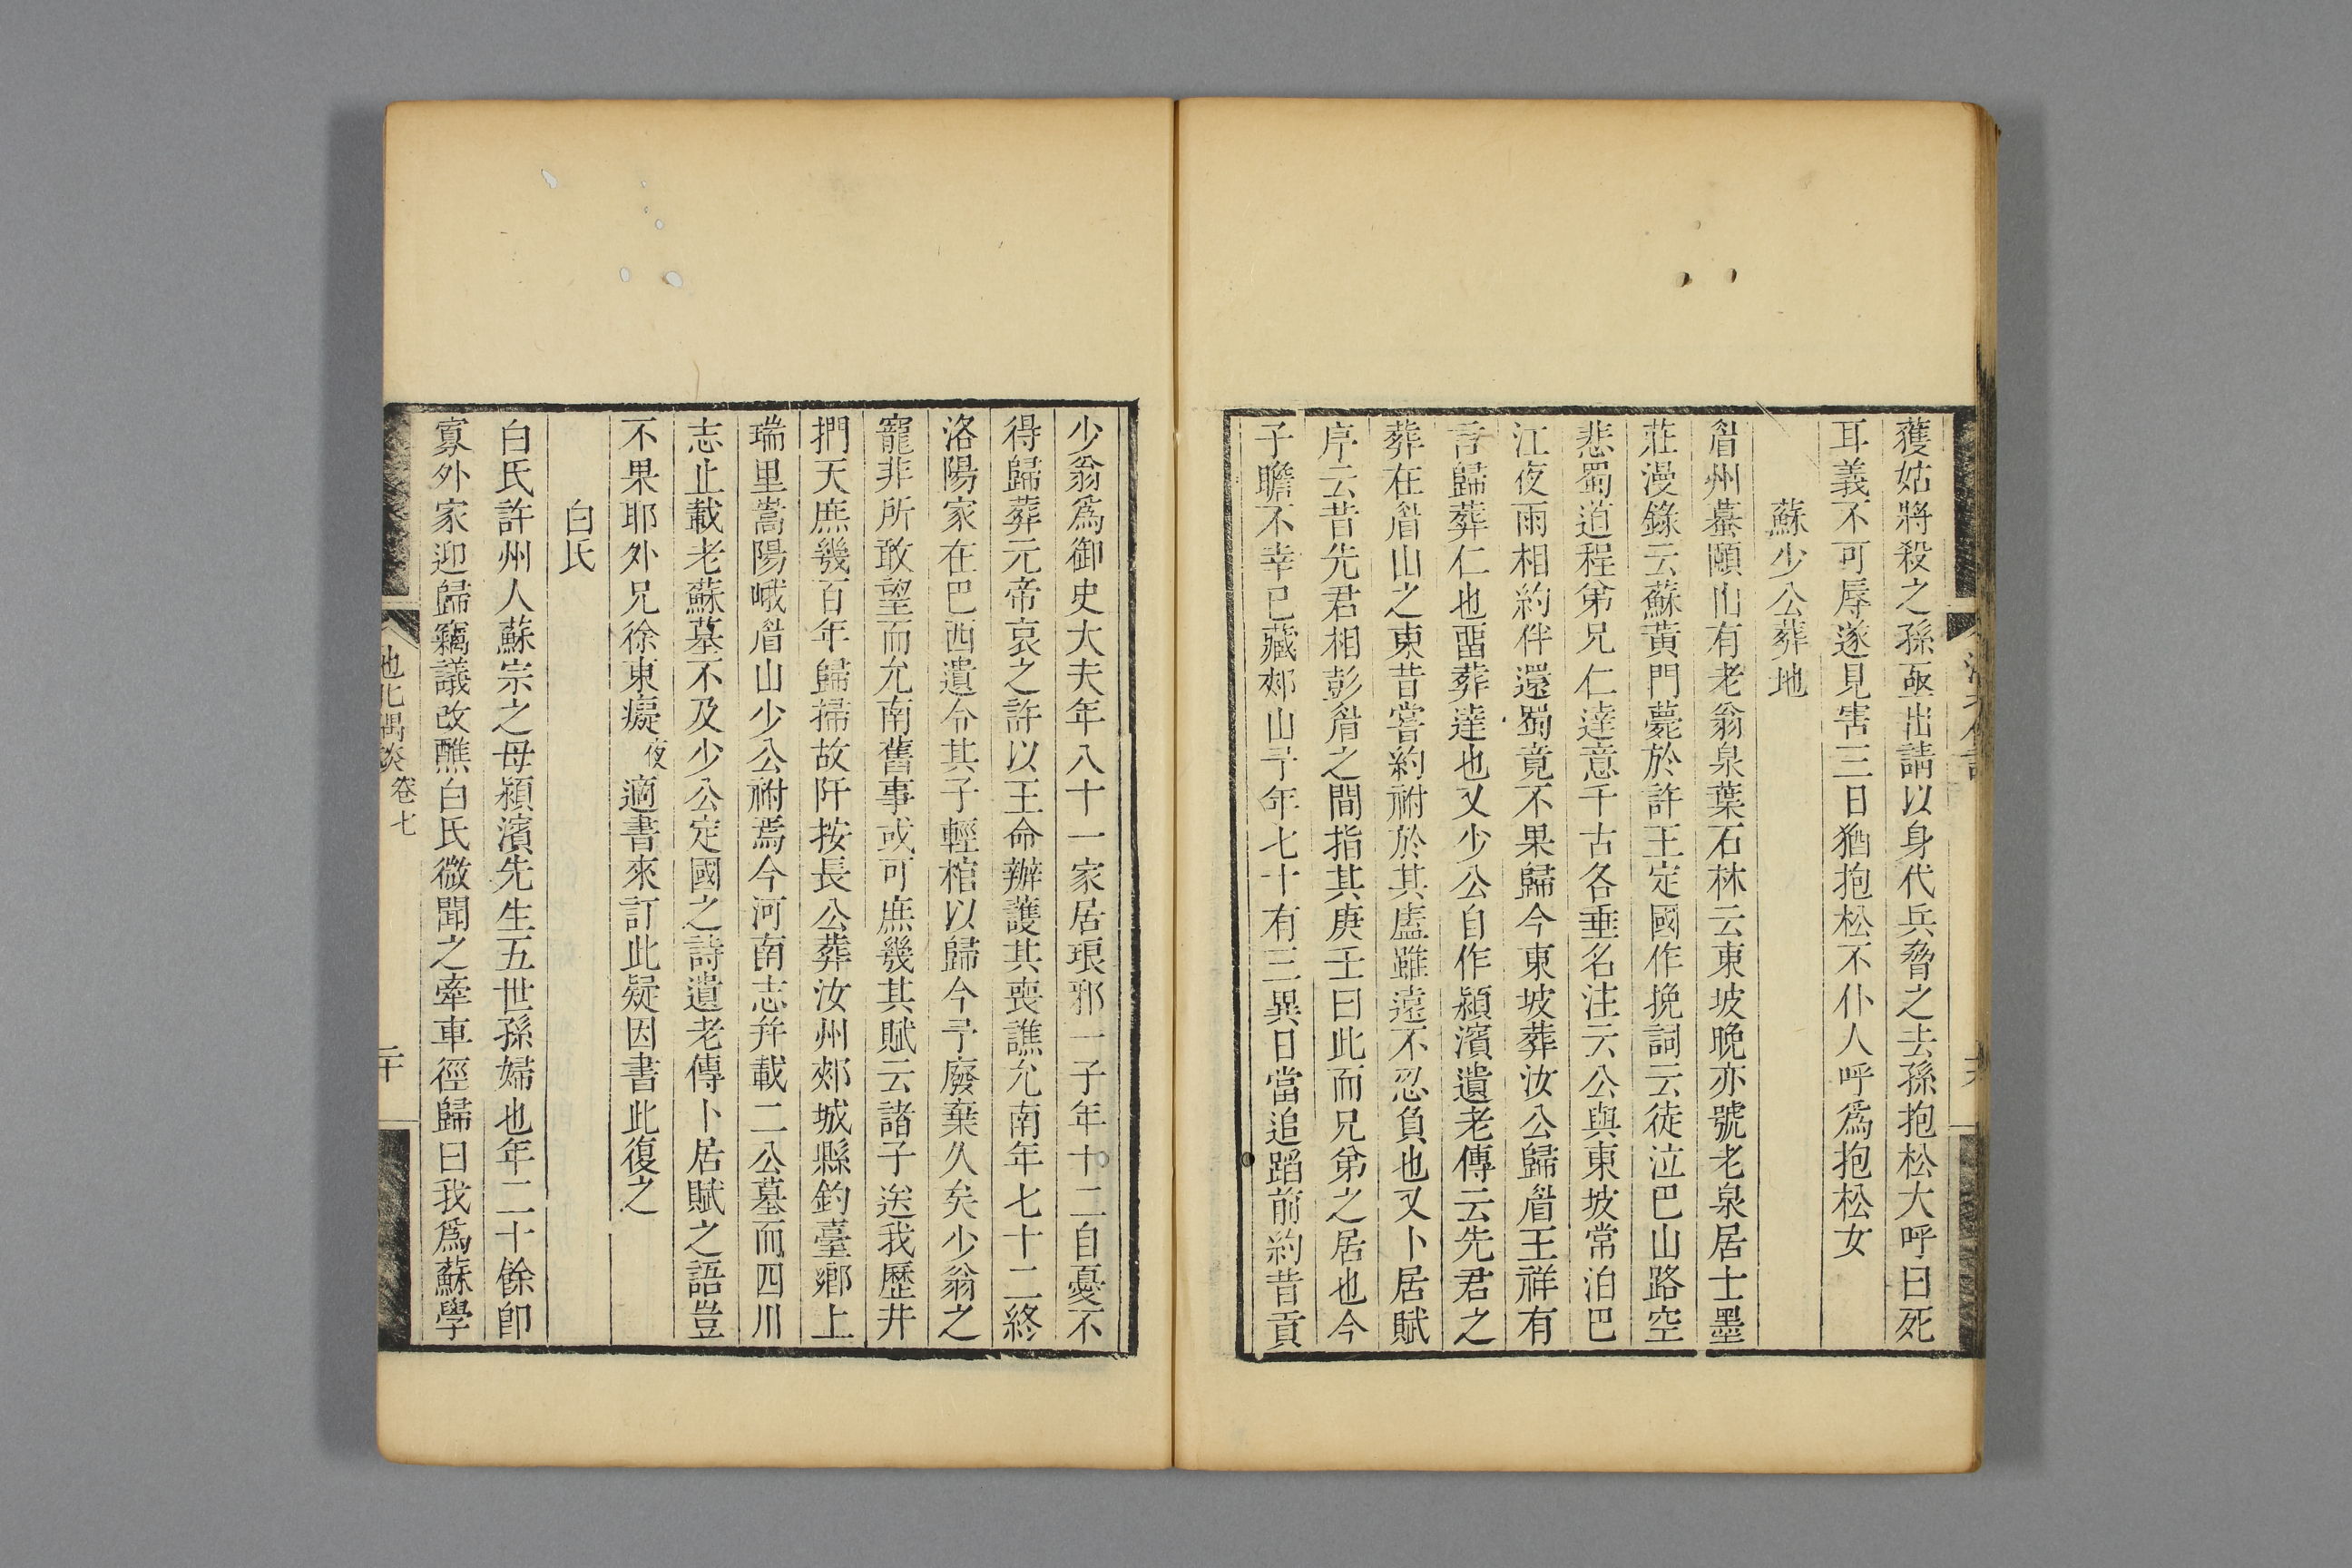 獲姑將殺之孫亟出請以身代兵脅之去孫抱松大呼曰死
耳義不可辱遂見害三日猶抱松不仆人呼爲抱松女
蘇少公葬地
眉州蟇頤山有老翁泉葉石林云東坡晚亦號老泉居士墨
莊漫錄云蘇黃門薨於許王定國作挽詞云徒泣巴山路空
悲蜀道程弟兄仁達意千古各垂名注云公與東坡常泊巴
江夜雨相約伴還蜀竟不果歸今東坡葬汝公歸眉王祥有
言歸葬仁也畱葬達也又少公自作潁濱遺老傳云先君之
葬在眉山之東昔嘗約祔於其盧雖遠不忍負也又卜居賦
序云昔先君相彭眉之間指其庚壬曰此而兄弟之居也今
子瞻不幸已藏郟山予年七十有三異日當追蹈前約昔貢
少翁爲御史大夫年八十一家居琅邪一子年十二自憂不
得歸葬元帝哀之許以王命辦護其喪譙允南年七十二終
洛陽家在巴西遺令其子輕棺以歸今予廢棄久矣少翁之
寵非所敢望而允南舊事或可庶幾其賦云諸子送我歷井
捫天庶幾百年歸掃故阡按長公葬汝州郟城縣釣臺鄉上
瑞里嵩陽峨眉山少公祔焉今河南志幷載二公墓而四川
志止載老蘇墓不及少公定國之詩遺老傳卜居賦之語豈
不果耶外兄徐東癡夜適書來訂此疑因書此復之
白氏
白氏許州人蘇宗之母潁濱先生五世孫婦也年二十餘卽
寡外家迎歸竊議改醮白氏微聞之牽車徑歸曰我爲蘇學
池北偶談 卷七
二十